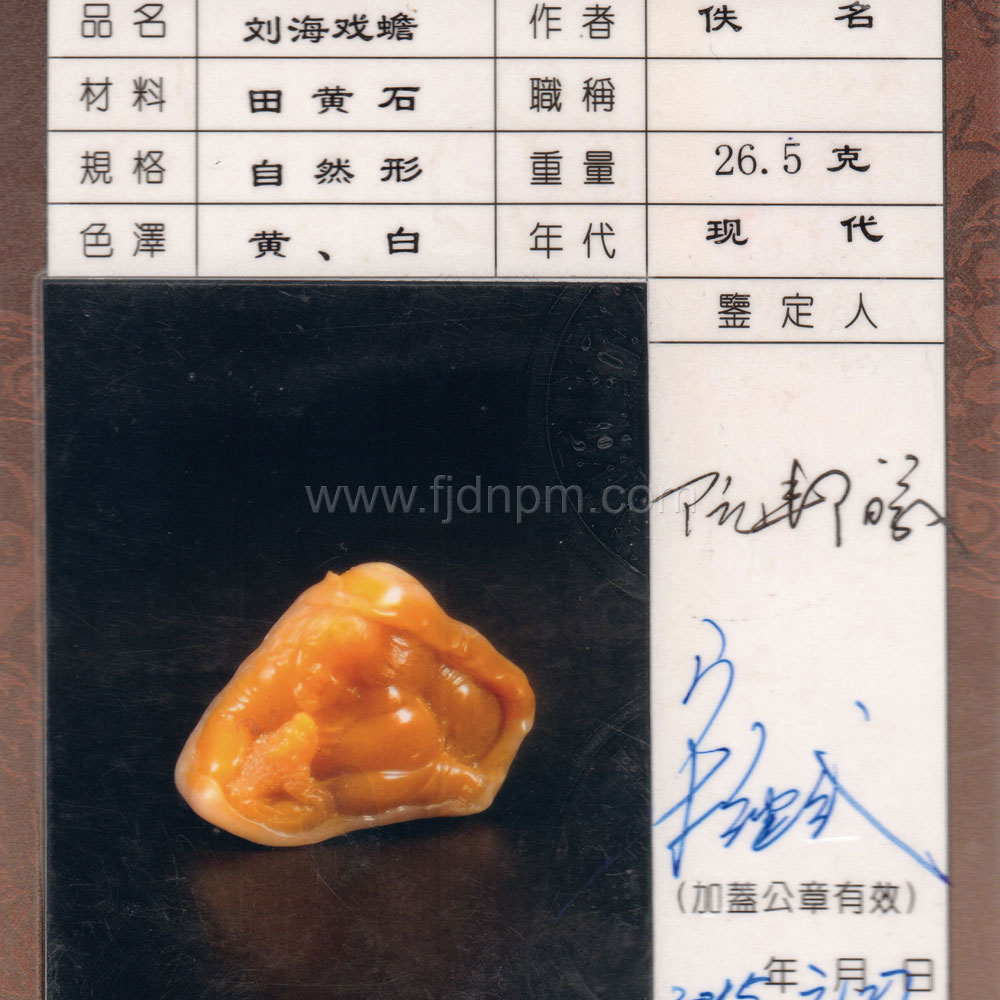 品名 刘海戏蟾 作者 佚名
材料 田黄石 職稱
規格 自然形 重量 26.5克
色澤 黄、白 年代 现代
鑒定人
www.fjdnpm.com
(加蓋公章有效)
年 月 日